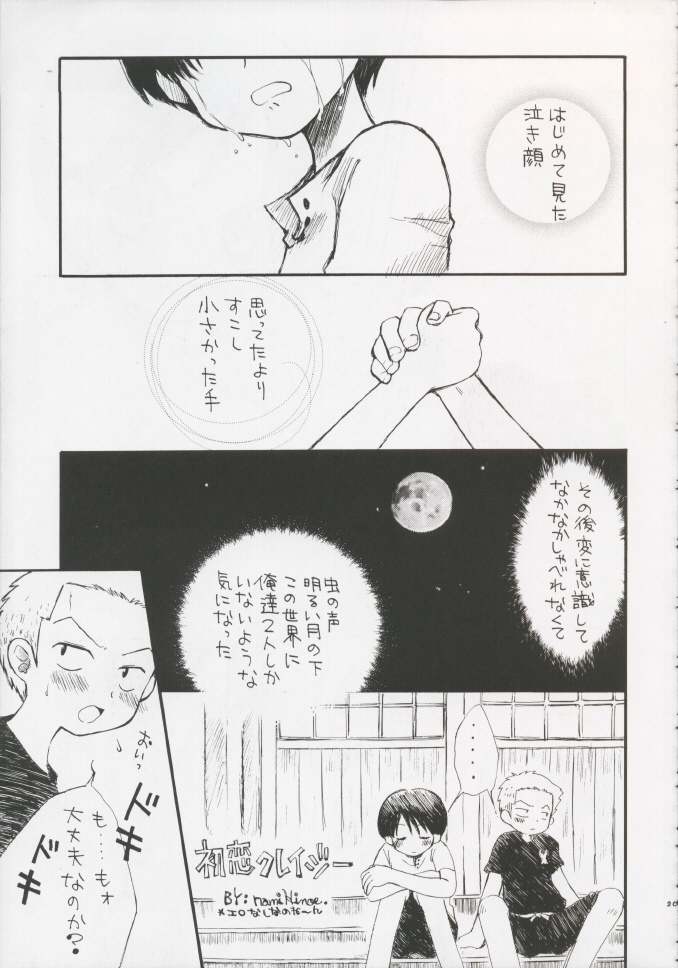 はじめて見た
泣き顔
思ってたより
すこし
小さかった手
その後変に意識して
なかなかしゃべれなくて
虫の声
明るい月の下
この世界に
俺達2人しか
いないような
気になった
・・・・
初恋クレイジー
BY: nami Hinoe.
*エロなしなのな〜ん
おいっ
ドキ
ドキ
も……もォ
大丈夫なのか?